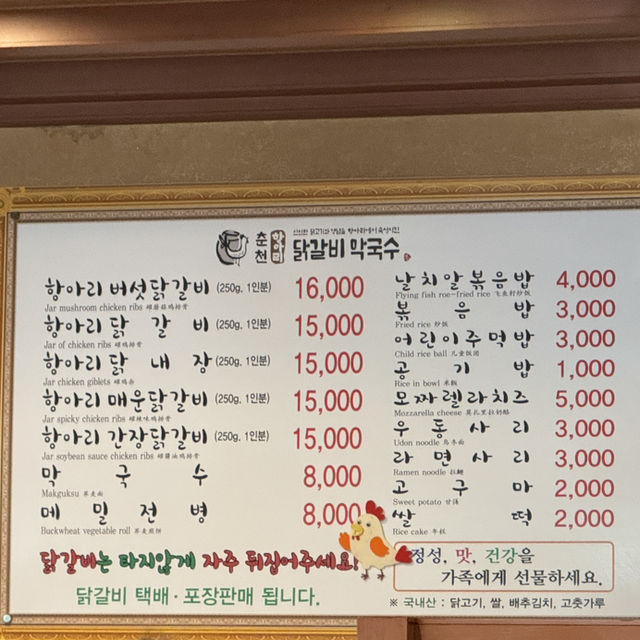 춘천 항아리
신선한 닭고기와 양념을 항아리에서 숙성시킨
닭갈비 막국수
항아리 버섯닭갈비 (250g, 1인분) 16,000
Jar mushroom chicken ribs 罐蘑菇鸡排骨
항아리 닭갈비 (250g, 1인분) 15,000
Jar of chicken ribs 罐鸡排骨
항아리 닭내장 (250g, 1인분) 15,000
Jar chicken giblets 罐鸡杂
항아리 매운닭갈비 (250g, 1인분) 15,000
Jar spicy chicken ribs 罐辣味鸡排骨
항아리 간장닭갈비 (250g, 1인분) 15,000
Jar soybean sauce chicken ribs 罐酱油鸡排骨
막국수 8,000
Makguksu 荞麦面
메밀전병 8,000
Buckwheat vegetable roll 荞麦煎饼
날치알볶음밥 4,000
Flying fish roe-fried rice 飞鱼籽炒饭
볶음밥 3,000
Fried rice 炒饭
어린이주먹밥 3,000
Child rice ball 儿童饭团
공기밥 1,000
Rice in bowl 米飯
모짜렐라치즈 5,000
Mozzarella cheese 莫扎里拉奶酪
우동사리 3,000
Udon noodle 乌冬面
라면사리 3,000
Ramen noodle 拉麵
고구마 2,000
Sweet potato 甘薯
쌀떡 2,000
Rice cake 年糕
닭갈비는 타지않게 자주 뒤집어주세요!
닭갈비 택배·포장판매 됩니다.
정성, 맛, 건강을
가족에게 선물하세요.
※ 국내산 : 닭고기, 쌀, 배추김치, 고춧가루